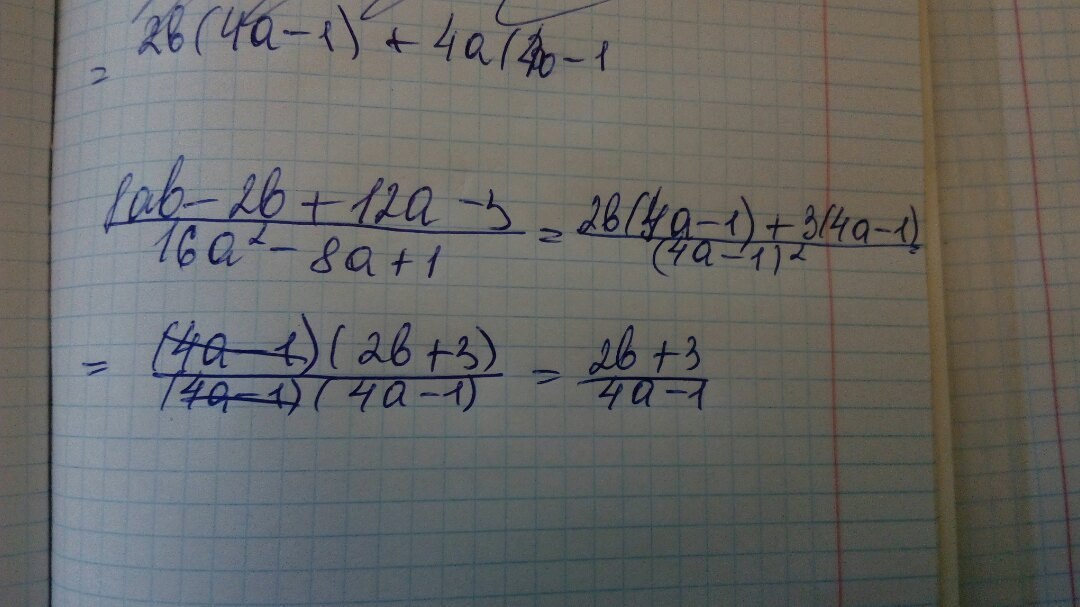 2b(4a-1) + 4a(4b-1
=
8ab-2b+12a-3 / 16a²-8a+1 = 2b(4a-1)+3(4a-1) / (4a-1)² =
= (4a-1)(2b+3) / (4a-1)(4a-1) = 2b+3 / 4a-1